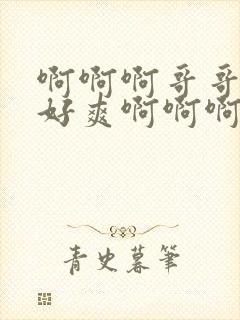 啊啊啊哥哥
好爽啊啊啊
青史暮笔